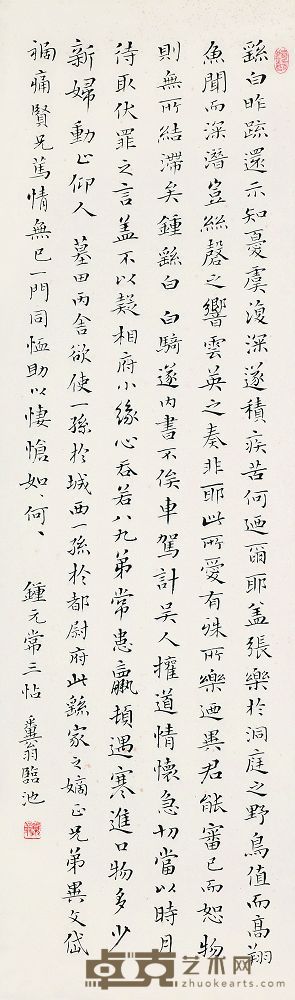 繇白昨疏還示知憂虞復深遂積疾苦何迺爾耶蓋張樂於洞庭之野鳥值而高翔
魚聞而深潛豈絲磬之響雲英之奏非耶此所愛有殊所樂迺異君能審己而恕物
則無所結滯矣鍾繇白 白騎遂內書不俟車駕計吴人權道情懷急切當以時月
待取伏罪之言蓋不以疑相府小緣心吞若八九弟常患羸頓遇寒進口物多少
新婦動止仰人 墓田丙舍欲使一孫於城西一孫於都尉府此繇家之嫡正兄弟異文岱
禍痛賢兄篤情無已一門同恤助以悽愴如何〻
鍾元常三帖 糞翁臨池
卓克艺术网
www.zhuokearts.com